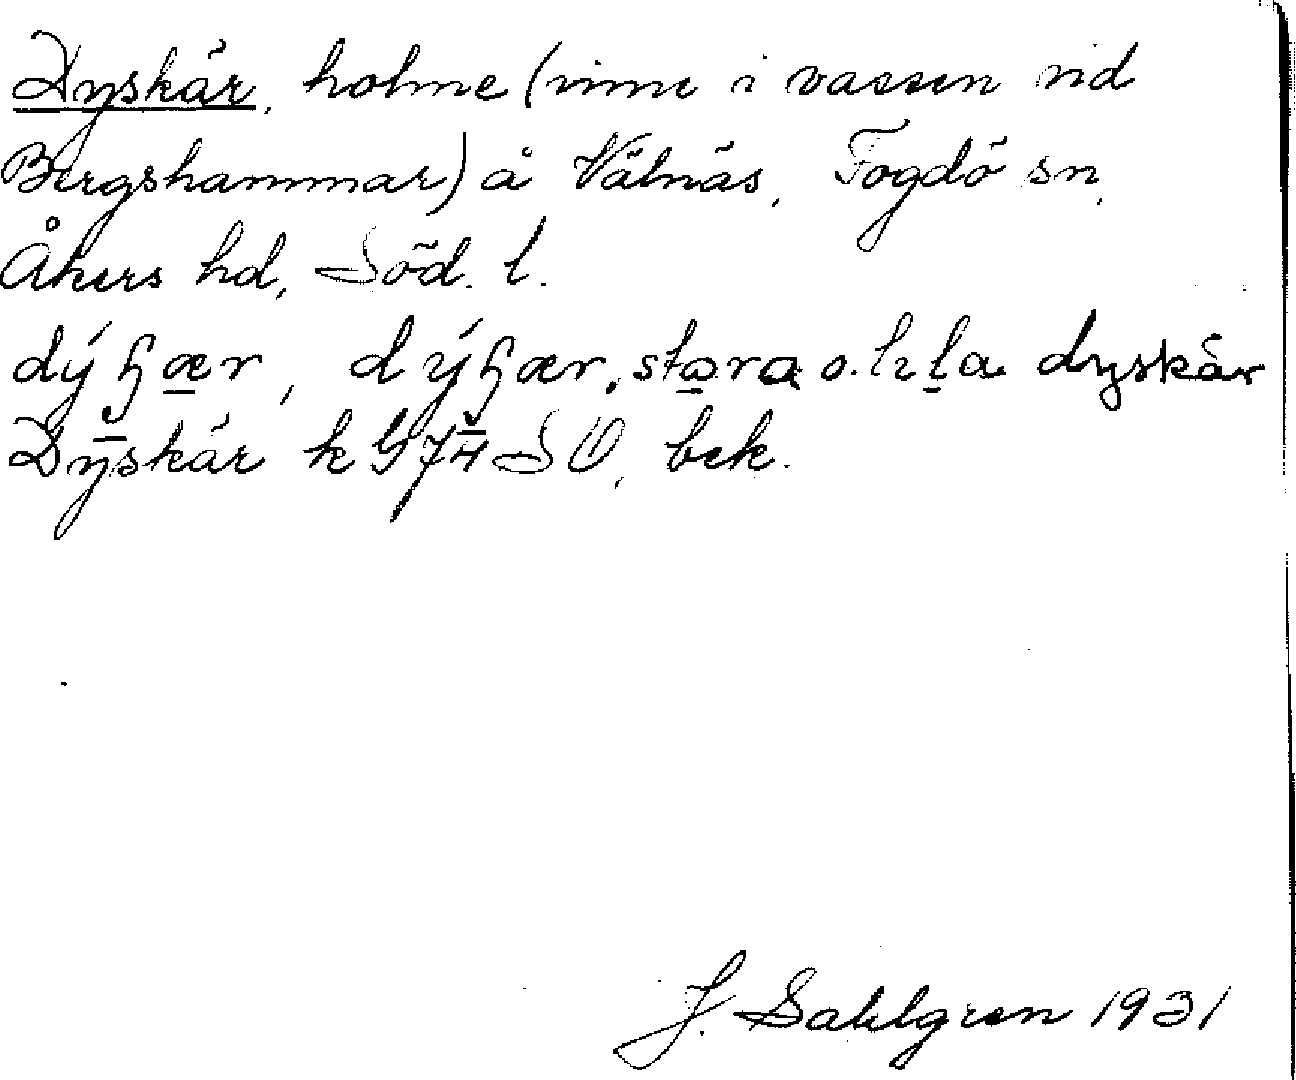 Dyskär, holme (inne i vassen vid
Bergshammar) å Välnäs, Fogdö sn,
Åkers hd, Söd. l.
stora o. dyskär
Dyskär k G 74 SO, bek.
J. Sahlgren 1931